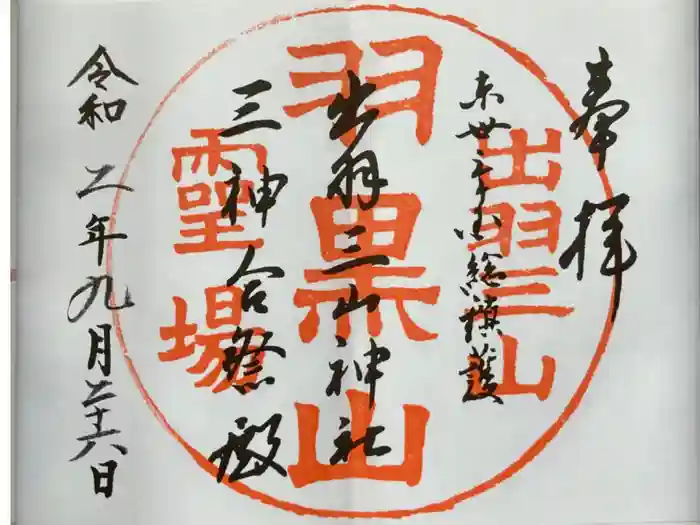 奉拝
未世平國総鎮護
出羽三山神社
三神合祭殿
令和二年九月二十六日
出羽三山
羽黒山
霊場